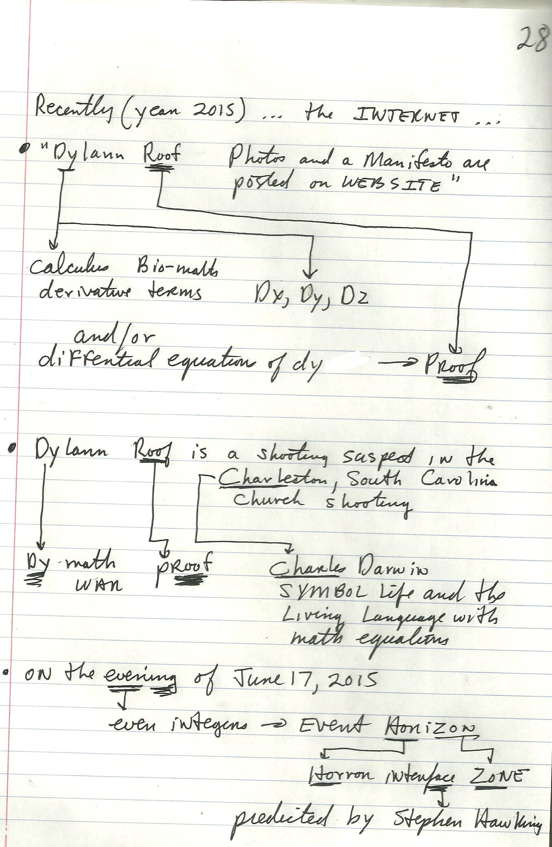 28
Recently (year 2015) ... the INTERNET ...
• "Dylann Roof Photos and a Manifesto are
posted on WEBSITE"
Calculus Bio-math
derivative terms Dx, Dy, Dz
and/or
diffential equation of dy → PRoof
• Dylann Roof is a shooting suspect in the
Charleston, South Carolina
Church shooting
Dy-math
WAR
PRoof
Charles Darwin
SYMBOL Life and the
Living Language with
math equations
• ON the evening of June 17, 2015
even integers → Event Horizon
Horror interface ZONE
predicted by Stephen Hawking